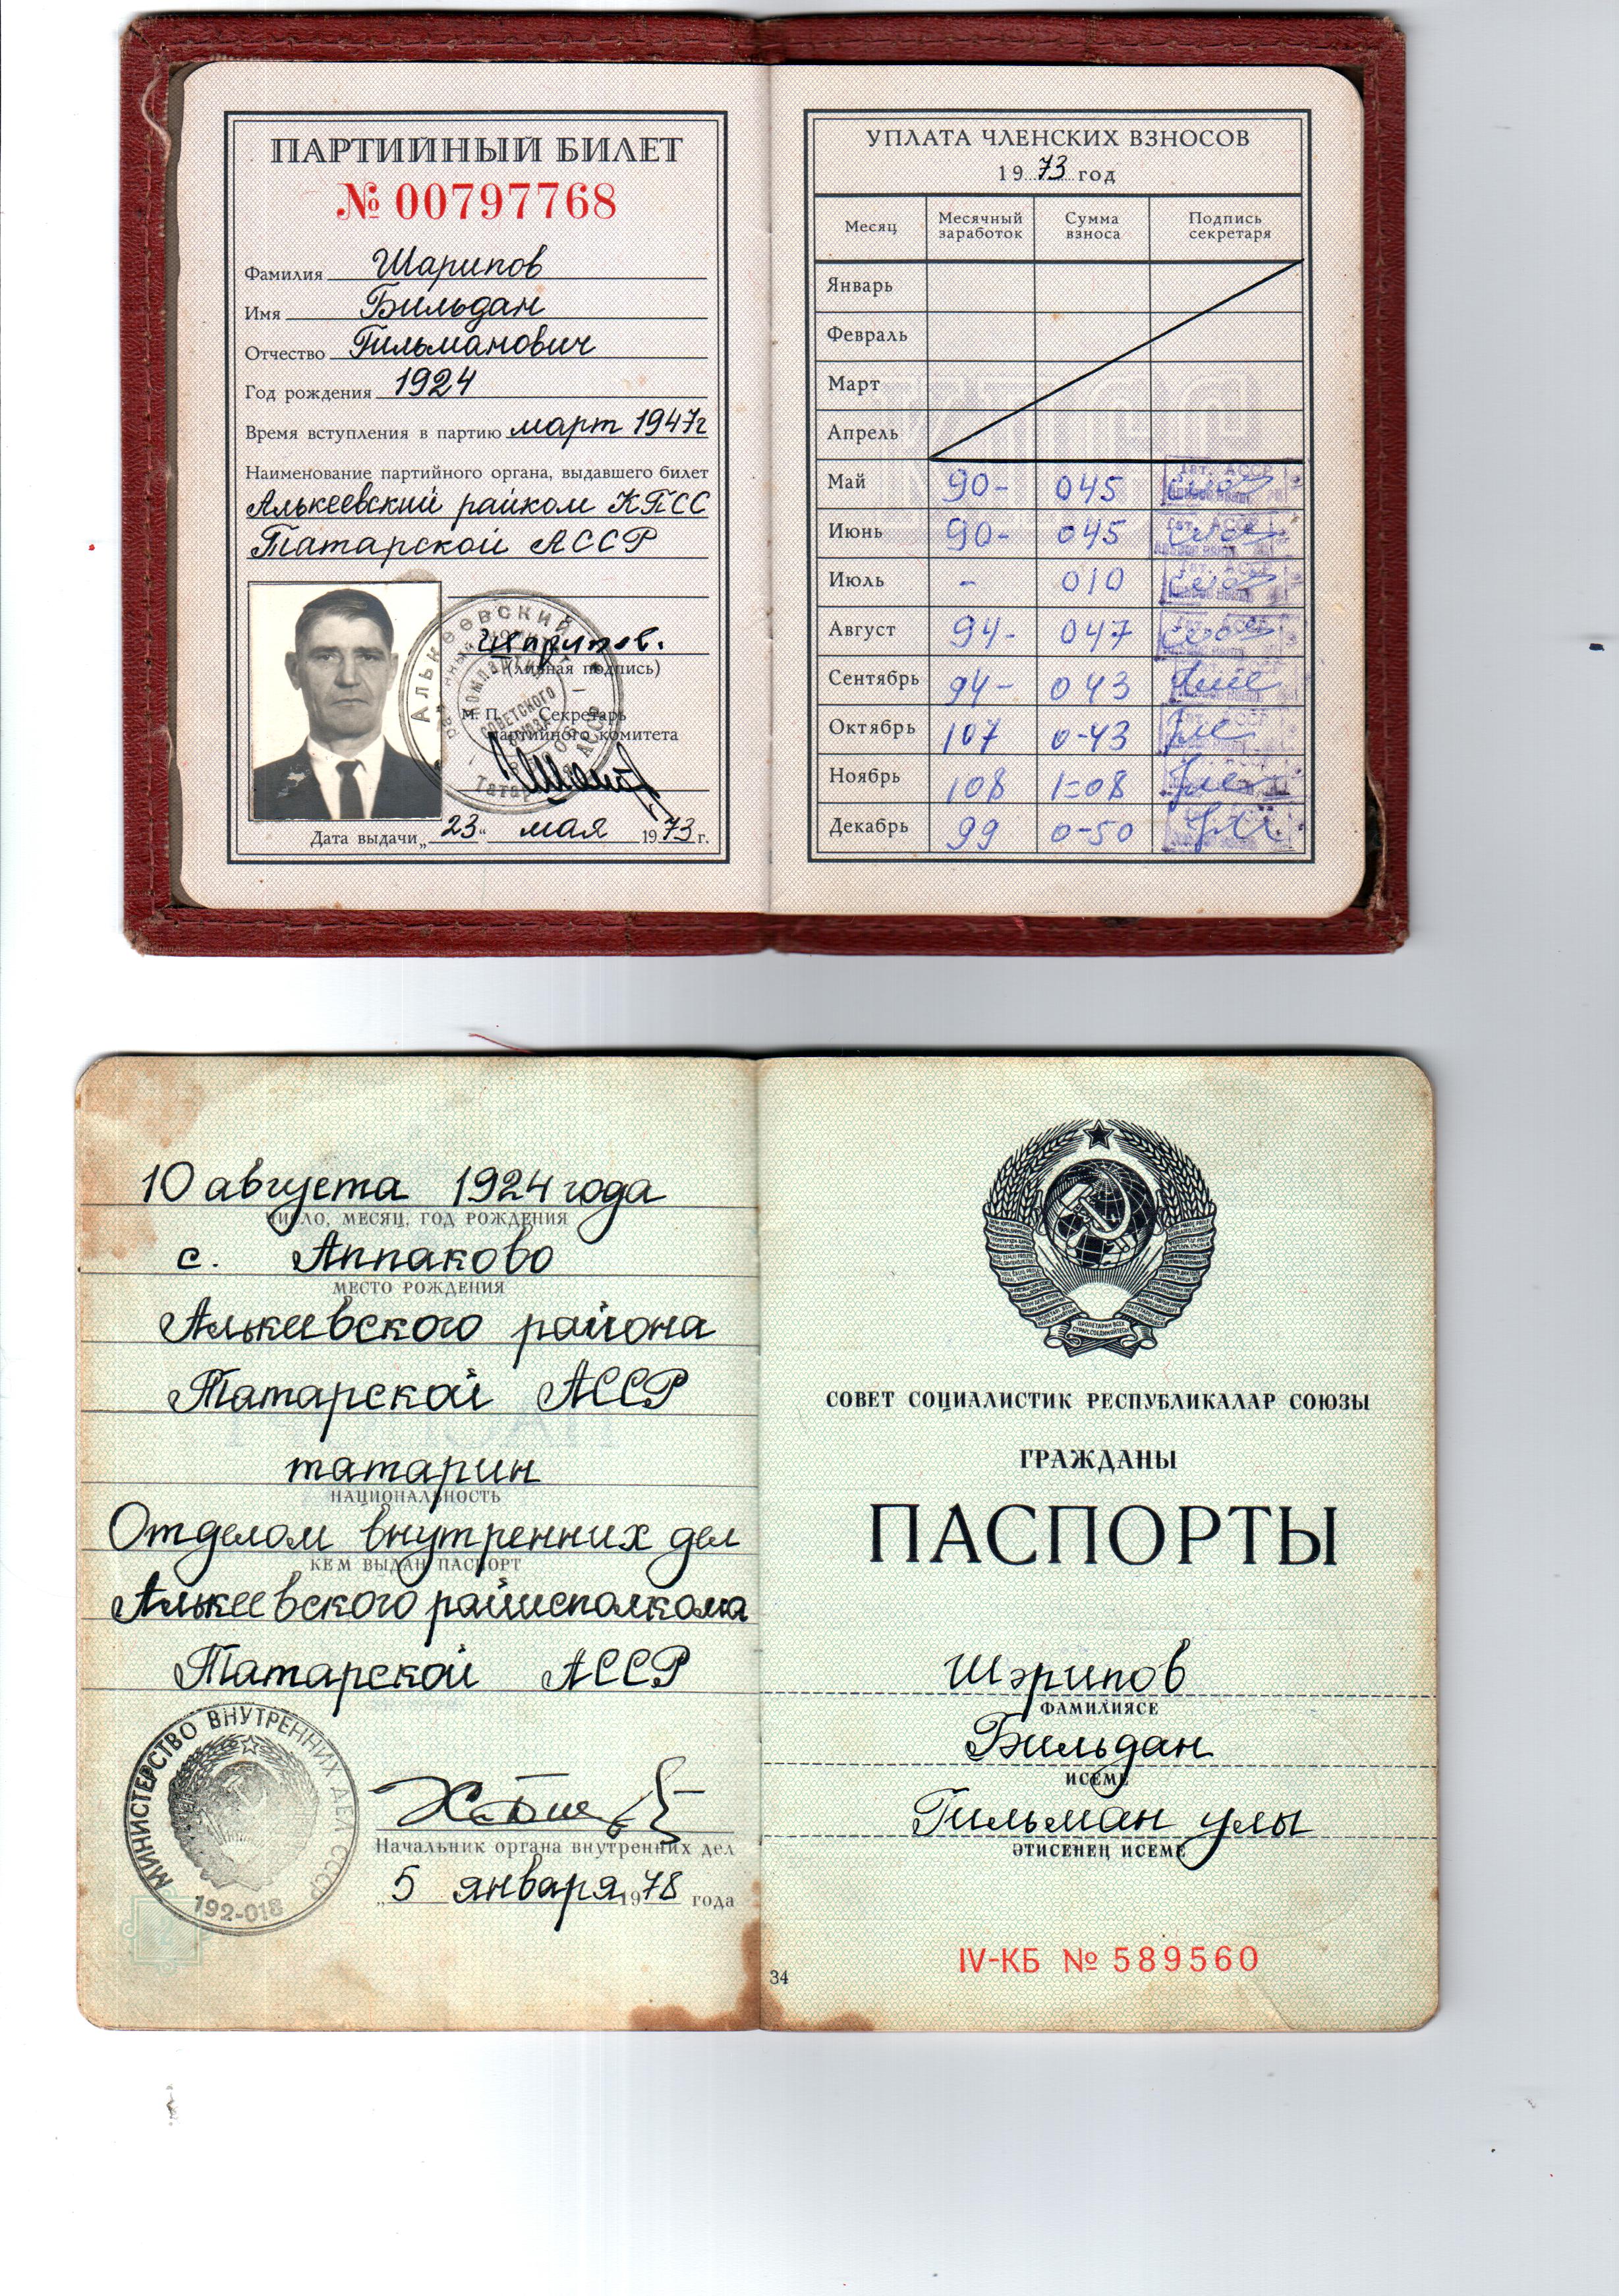 ПАРТИЙНЫЙ БИЛЕТ
№ 00797768
Фамилия Шарипов
Имя Бильдан
Отчество Гильманович
Год рождения 1924
Время вступления в партию март 1947г
Наименование партийного органа, выдавшего билет
Алькеевский райком КПСС
Татарской АССР
Шарипов.
(личная подпись)
М. П. Секретарь
партийного комитета
Дата выдачи „23“ мая 1973 г.
УПЛАТА ЧЛЕНСКИХ ВЗНОСОВ
1973 год
Месяц Месячный заработок Сумма взноса Подпись секретаря
Январь
Февраль
Март
Апрель
Май 90- 045
Июнь 90- 045
Июль - 010
Август 94- 047
Сентябрь 94- 043
Октябрь 107 0-43
Ноябрь 108 1=08
Декабрь 99 0-50
10 августа 1924 года
ЧИСЛО, МЕСЯЦ, ГОД РОЖДЕНИЯ
с. Аппаково
МЕСТО РОЖДЕНИЯ
Алькеевского района
Татарской АССР
татарин
НАЦИОНАЛЬНОСТЬ
Отделом внутренних дел
КЕМ ВЫДАН ПАСПОРТ
Алькеевского райисполкома
Татарской АССР
МИНИСТЕРСТВО ВНУТРЕННИХ ДЕЛ СССР
192-018
Начальник органа внутренних дел
„5 января 1978 года
СОВЕТ СОЦИАЛИСТИК РЕСПУБЛИКАЛАР СОЮЗЫ
ГРАЖДАНЫ
ПАСПОРТЫ
Шәрипов
ФАМИЛИЯСЕ
Бильдан
ИСЕМЕ
Гильман улы
ӘТИСЕНЕҢ ИСЕМЕ
IV-КБ № 589560
34